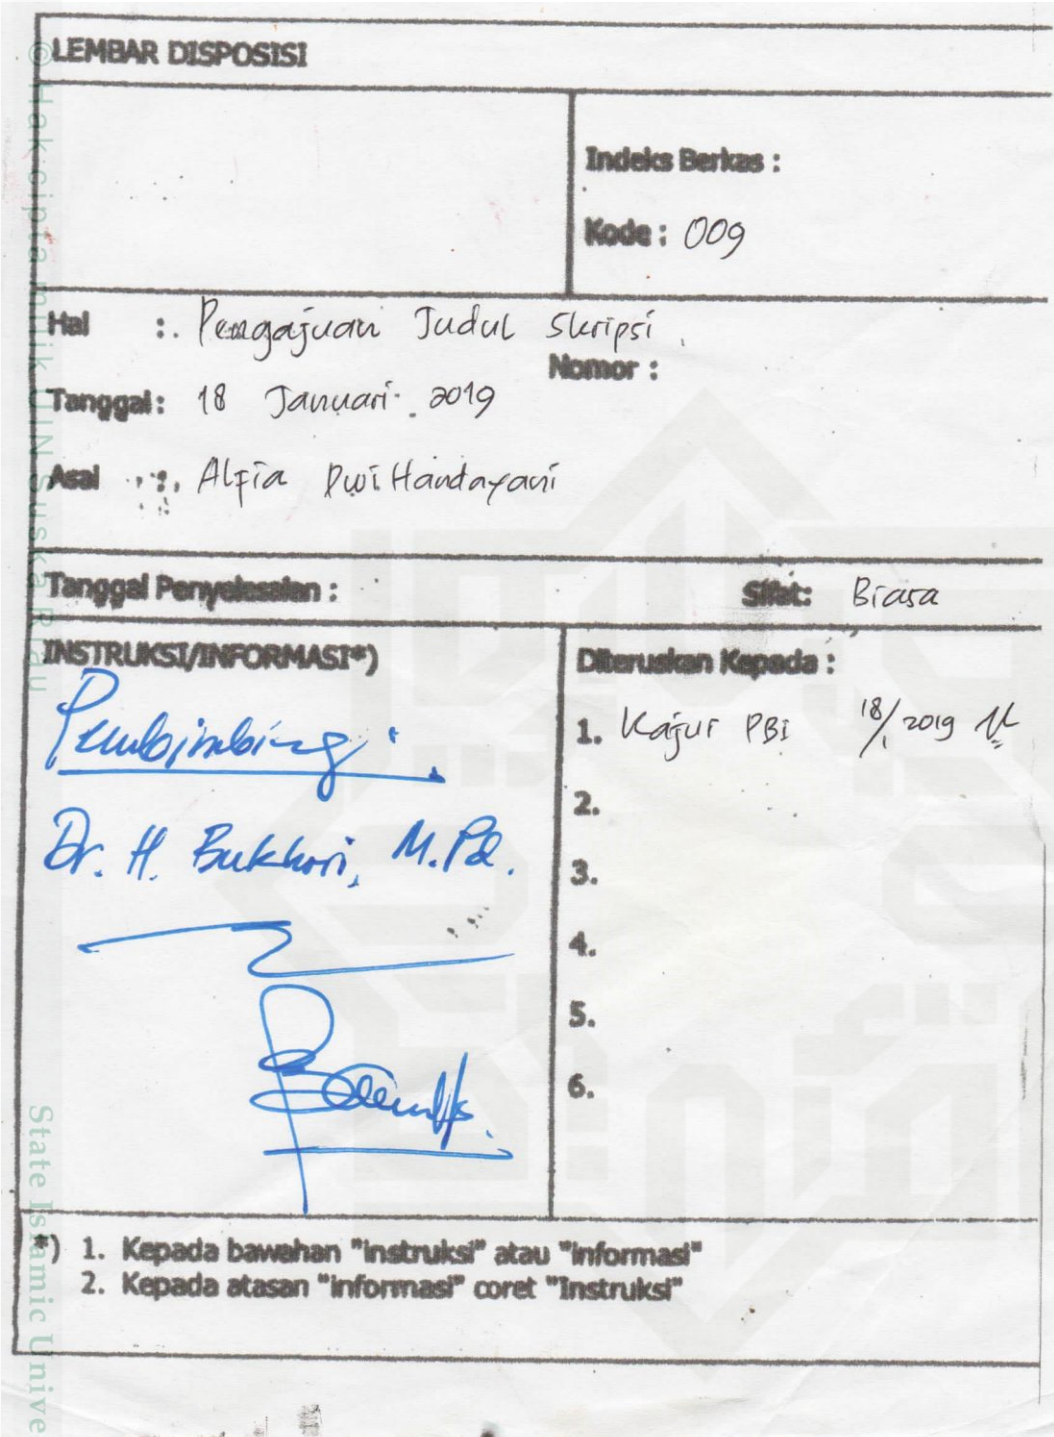 LEMBAR DISPOSISI
Indeks Berkas :
Kode : 009
Hal : Pengajuan Judul Skripsi
Nomor :
Tanggal : 18 Januari 2019
Asal : Alfia Dwi Handayani
Tanggal Penyelesaian :
Sifat: Biasa
INSTRUKSI/INFORMASI*)
Pembimbing :
Dr. H. Bukhori, M.Pd.
Diteruskan Kepada :
1. Kajur PBI 18/1 2019
2.
3.
4.
5.
6.
*) 1. Kepada bawahan "instruksi" atau "informasi"
2. Kepada atasan "informasi" coret "Instruksi"
© Hak cipta milik UIN Suska Riau
State Islamic Unive